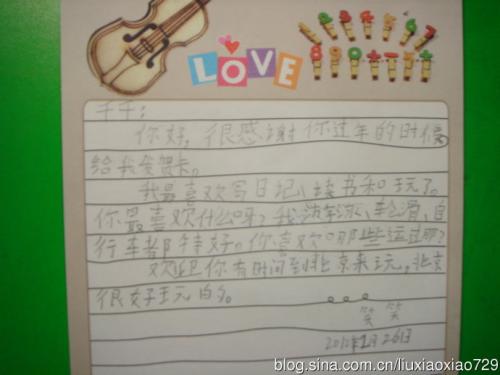 LOVE
千千：
你好，很感谢你过年的时候
给我发贺卡。
我最喜欢写日记、读书和玩了。
你最喜欢什么呀？我游泳、轮滑、自
行车都特好。你喜欢哪些运动？
欢迎你有时间到北京来玩，北京
很好玩的。
笑笑
2012年1月26日
blog.sina.com.cn/liuxiaoxiao729